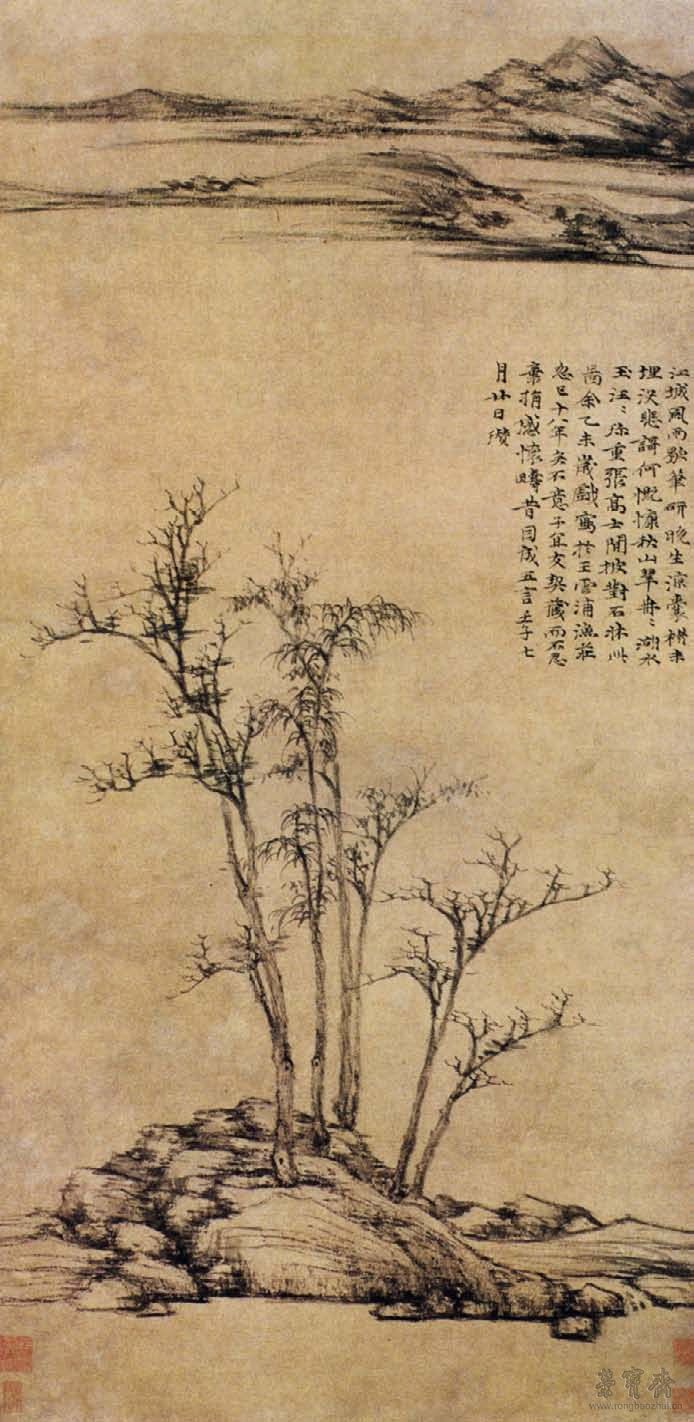 江城風雨歇筆研晚生涼囊楮未
埋没悲謌何慨慷秋山翠冉〻湖水
玉汪〻珍重張高士閒披對石牀此
啚余乙未歲戲寫於王雲浦漁莊
忽已十八年矣不意子宜友契藏而不忍
棄捐感懷疇昔因成五言壬子七
月廿日瓚
榮寶齋
www.rongbaozhai.cn